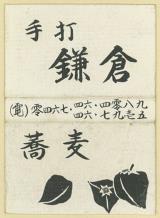 手打
鎌倉
(電)零四六七・四六・四零八九
四六・七九壱五
蕎麦